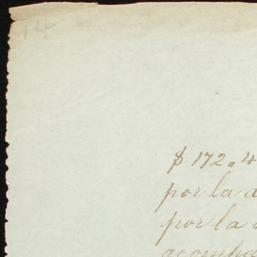 14
$ 172.4
por la a
por la
acompa